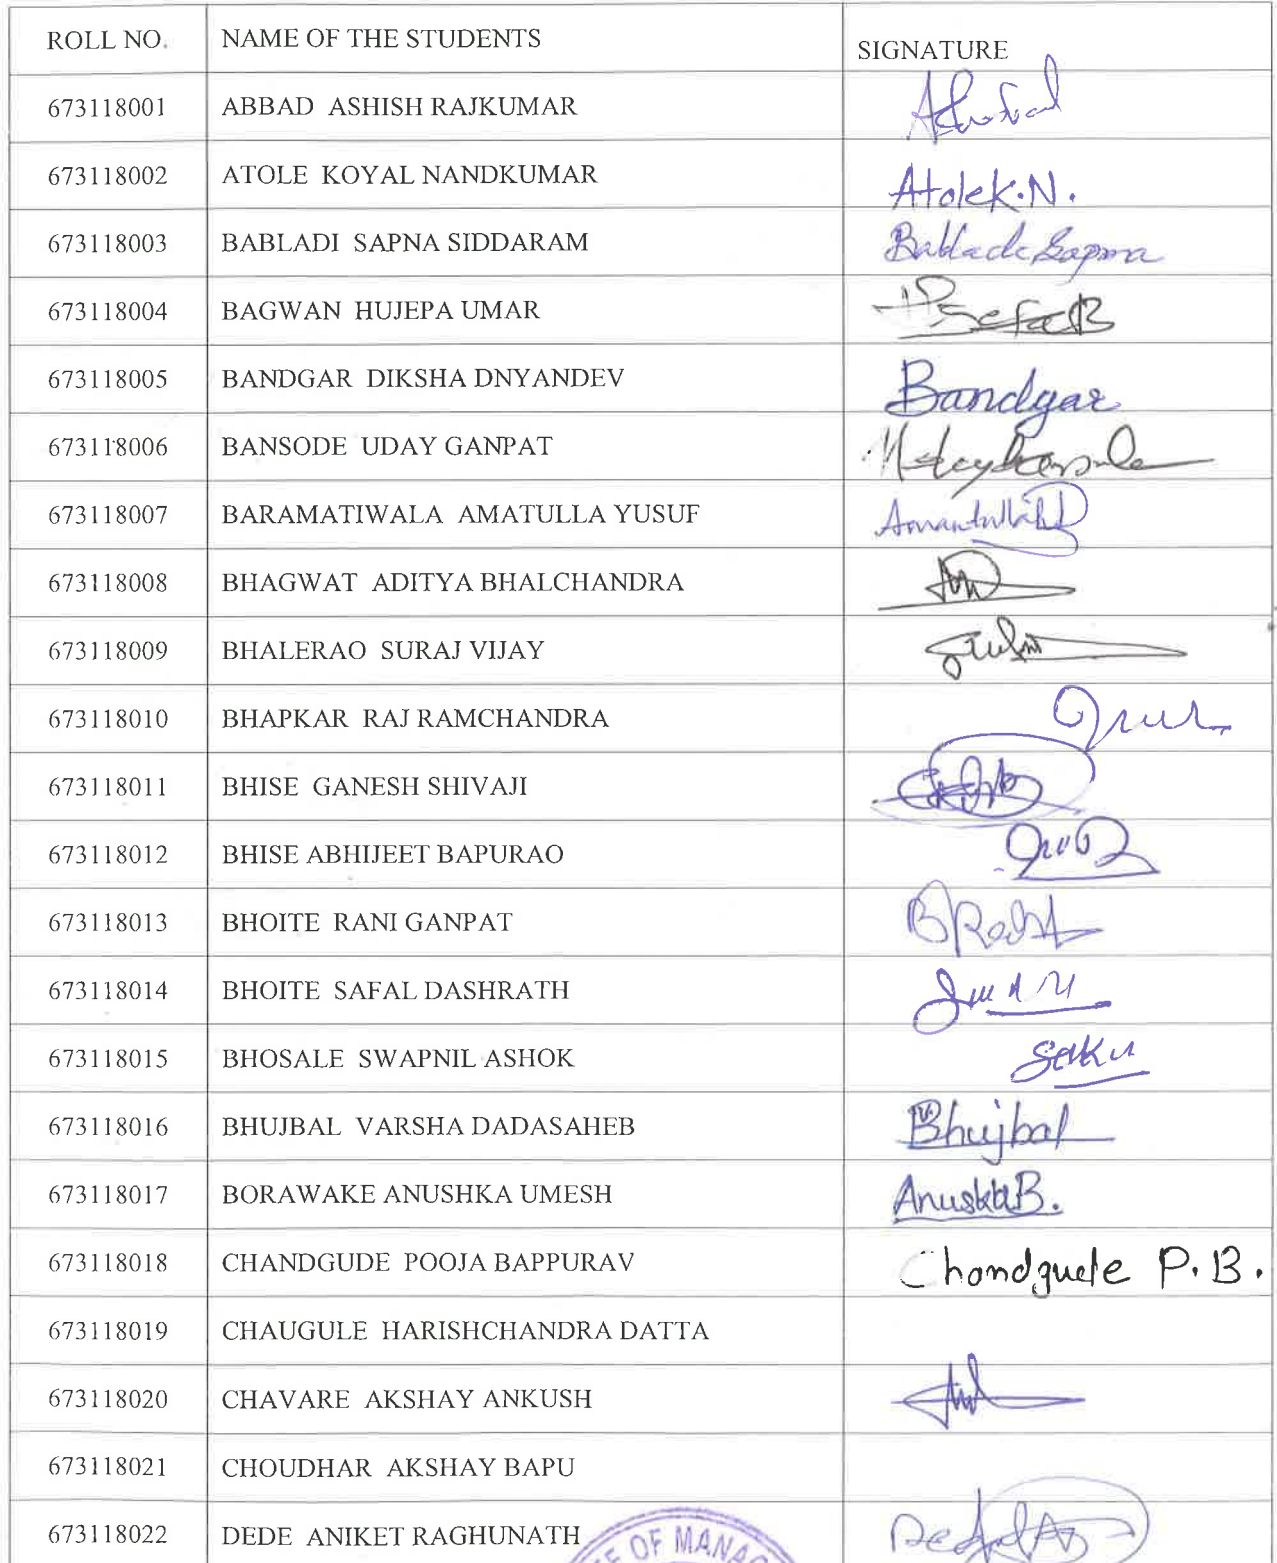 ROLL NO. NAME OF THE STUDENTS SIGNATURE
673118001 ABBAD ASHISH RAJKUMAR
673118002 ATOLE KOYAL NANDKUMAR Atole K.N.
673118003 BABLADI SAPNA SIDDARAM Babladi Sapna
673118004 BAGWAN HUJEPA UMAR
673118005 BANDGAR DIKSHA DNYANDEV Bandgar
673118006 BANSODE UDAY GANPAT
673118007 BARAMATIWALA AMATULLA YUSUF
673118008 BHAGWAT ADITYA BHALCHANDRA
673118009 BHALERAO SURAJ VIJAY
673118010 BHAPKAR RAJ RAMCHANDRA
673118011 BHISE GANESH SHIVAJI
673118012 BHISE ABHIJEET BAPURAO
673118013 BHOITE RANI GANPAT
673118014 BHOITE SAFAL DASHRATH
673118015 BHOSALE SWAPNIL ASHOK
673118016 BHUJBAL VARSHA DADASAHEB Bhujbal
673118017 BORAWAKE ANUSHKA UMESH Anushka B.
673118018 CHANDGUDE POOJA BAPPURAV Chandgude P.B.
673118019 CHAUGULE HARISHCHANDRA DATTA
673118020 CHAVARE AKSHAY ANKUSH
673118021 CHOUDHAR AKSHAY BAPU
673118022 DEDE ANIKET RAGHUNATH
OF MANAG